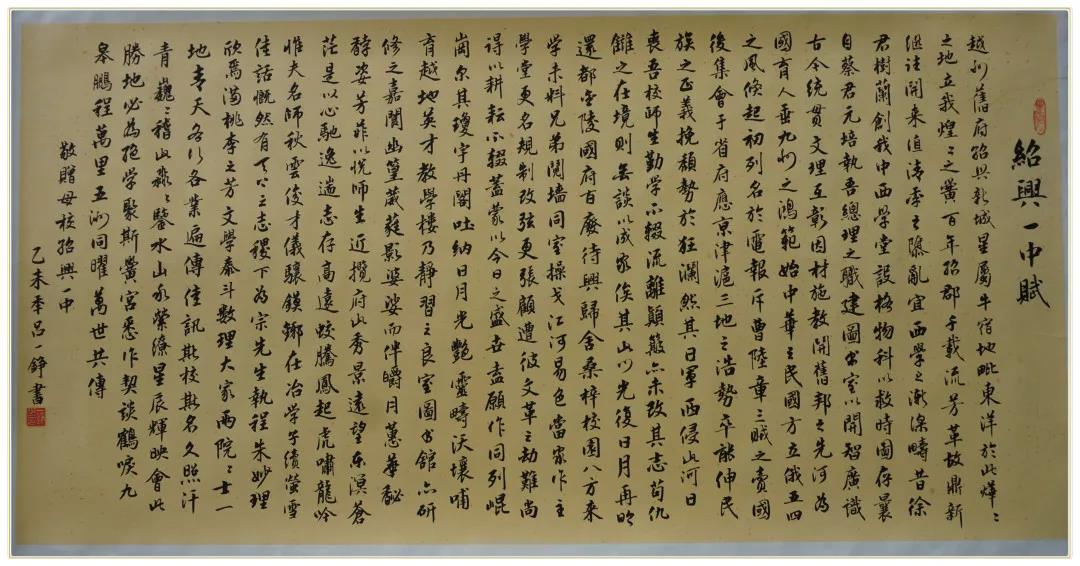 紹興一中賦
越州舊府紹興新城星屬牛宿地毗東洋於此煒=
之地立我煌=之黌百年紹郡千載流芳革故鼎新
繼往開來值清季之隳亂宜西學之漸深疇昔徐
君樹蘭創我中西學堂設格物科以救時圖存曩
自蔡君元培執吾總理之職建圖書室以開智廣識
古今統貫文理互彰因材施教開舊邦之先河為
國育人垂九州之鴻範始中華之民國方立俄五四
之風倏起初列名於電報斥曹陸章三賊之賣國
後集會于省府應京津滬三地之浩勢卒能伸民
族之正義挽頹勢於狂瀾然其日軍西侵山河日
喪吾校師生勤學不輟流離顛簸亦未改其志苟仇
雠之在境則無談以成家俟其山川光復日月再明
還都金陵國府百廢待興歸舍桑梓校園八方來
学未料兄弟鬩墻同室操戈江河易色當家作主
學堂更名規制改弦更張顧遭彼文革之劫難尚
得以耕耘不輟蓋蒙以今日之盛世盍願作同列崐
崗尔其瓊宇丹閣吐納日月光艷靈疇沃壤哺
育越地英才教學樓乃靜習之良室圖书館亦研
修之嘉閣幽篁葳蕤影婆娑而伴嚼月蕙華馥
馞姿芳菲以悦師生近攬府山秀景遠望东溟蒼
茫是以心馳逸遄志存高遠蛟騰鳳起虎嘯龍吟
惟夫名師秋雲俊才儀驤鏌鋣在冶學子績螢雪
佳話慨然有天公之志稷下為宗先生執程朱妙理
欣焉滿桃李之芳文學泰斗數理大家兩院之士一
地青天各行各業遍傳佳訊斯校斯名久照汗
青巍=稽山淼=鑒水山永縈繚星辰輝映會此
勝地必為絶学聚斯黌宮悉作契談鶴唳九
皋鵬程萬里五洲同曜萬世共傳
敬贈母校紹興一中
乙未季吕一錚書